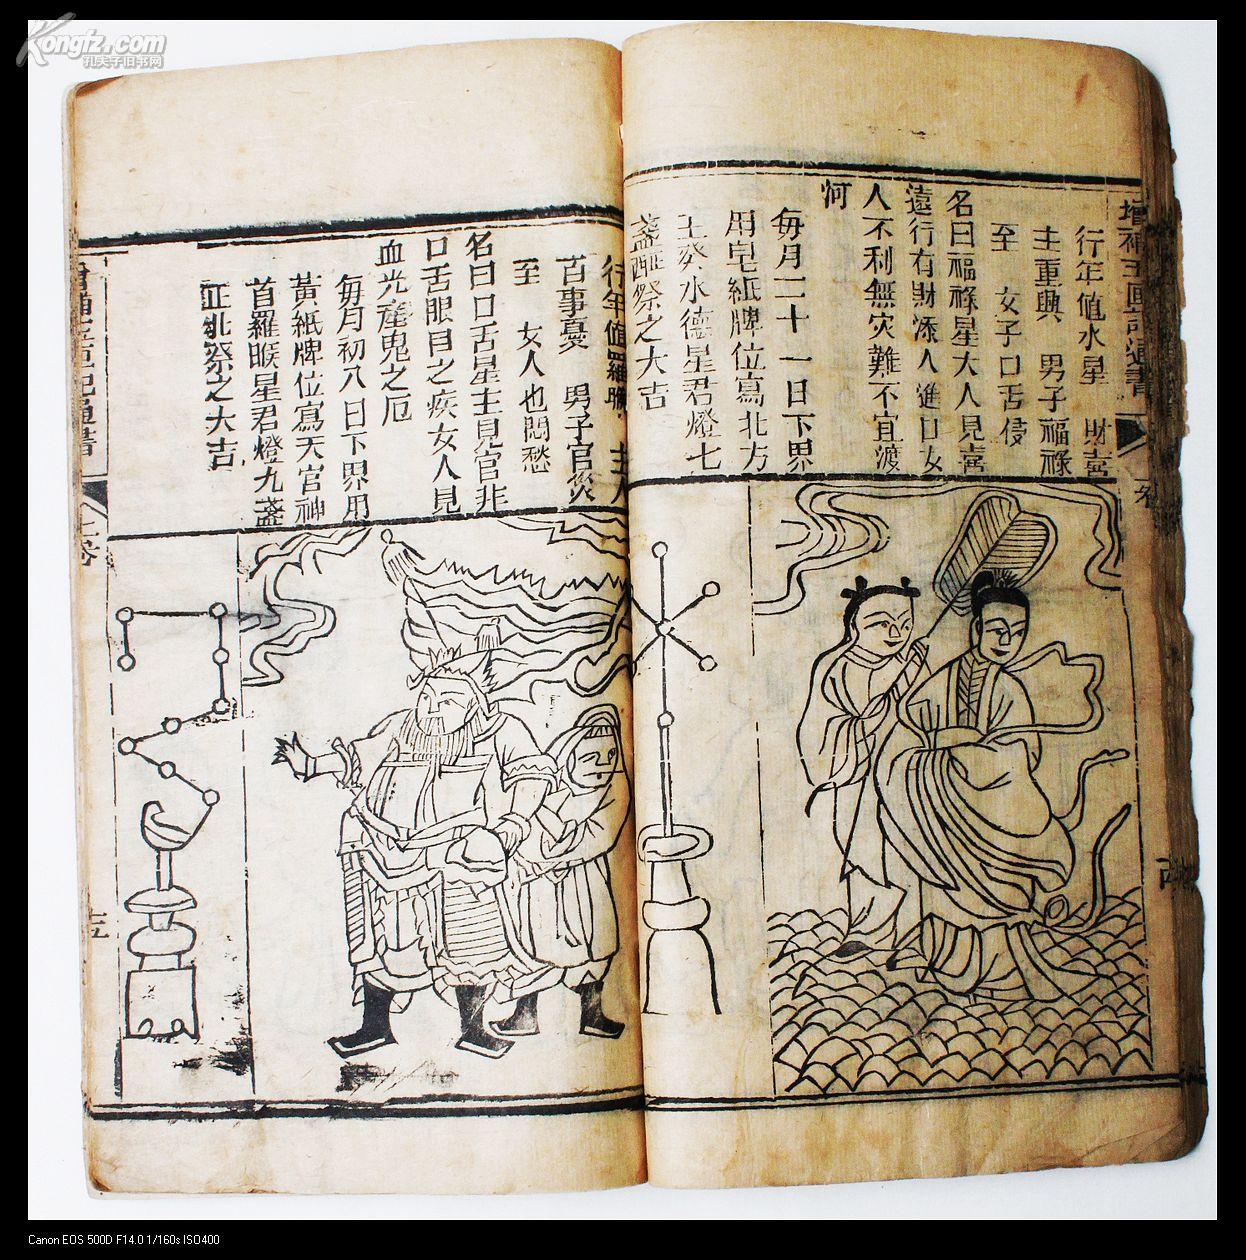 Kongfz.com
孔夫子旧书网
增補玉匣記通書
行年值水星　財喜
主重興　男子福祿
至　女子口舌侵
名曰福祿星大人見喜
遠行有財添人進口女
人不利無灾難不宜渡
河
每月二十一日下界
用皂紙牌位寫北方
壬癸水德星君燈七
盞醮祭之大吉
行年值羅睺　主人
百事憂　男子官灾
至　女人也悶愁
名曰口舌星主見官非
口舌眼目之疾女人見
血光產鬼之厄
每月初八日下界用
黃紙牌位寫天官神
首羅睺星君燈九盞
正北祭之大吉
上卷
Canon EOS 500D F14.0 1/160s ISO400